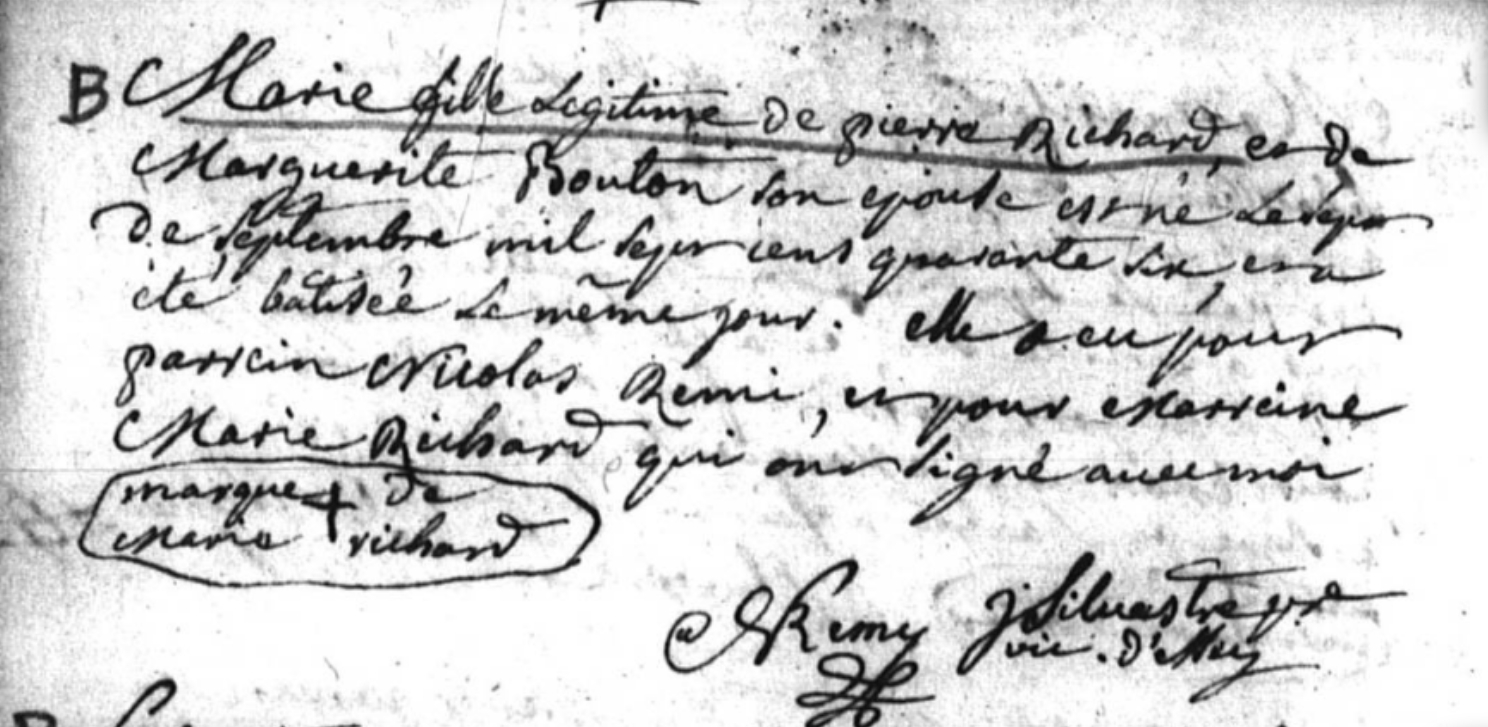 B Marie fille Legitime de pierre Richard, et de
Marguerite Bouton son epouse est né Le sept
de septembre mil sept cens quarante six, et a
été batisée Le même jour. elle a eu pour
parrein Nicolas Remi, et pour Marreine
Marie Richard qui ont signé avec moi
marque + de
Marie richard
N Remy J Silvastre ptre
vic. d'